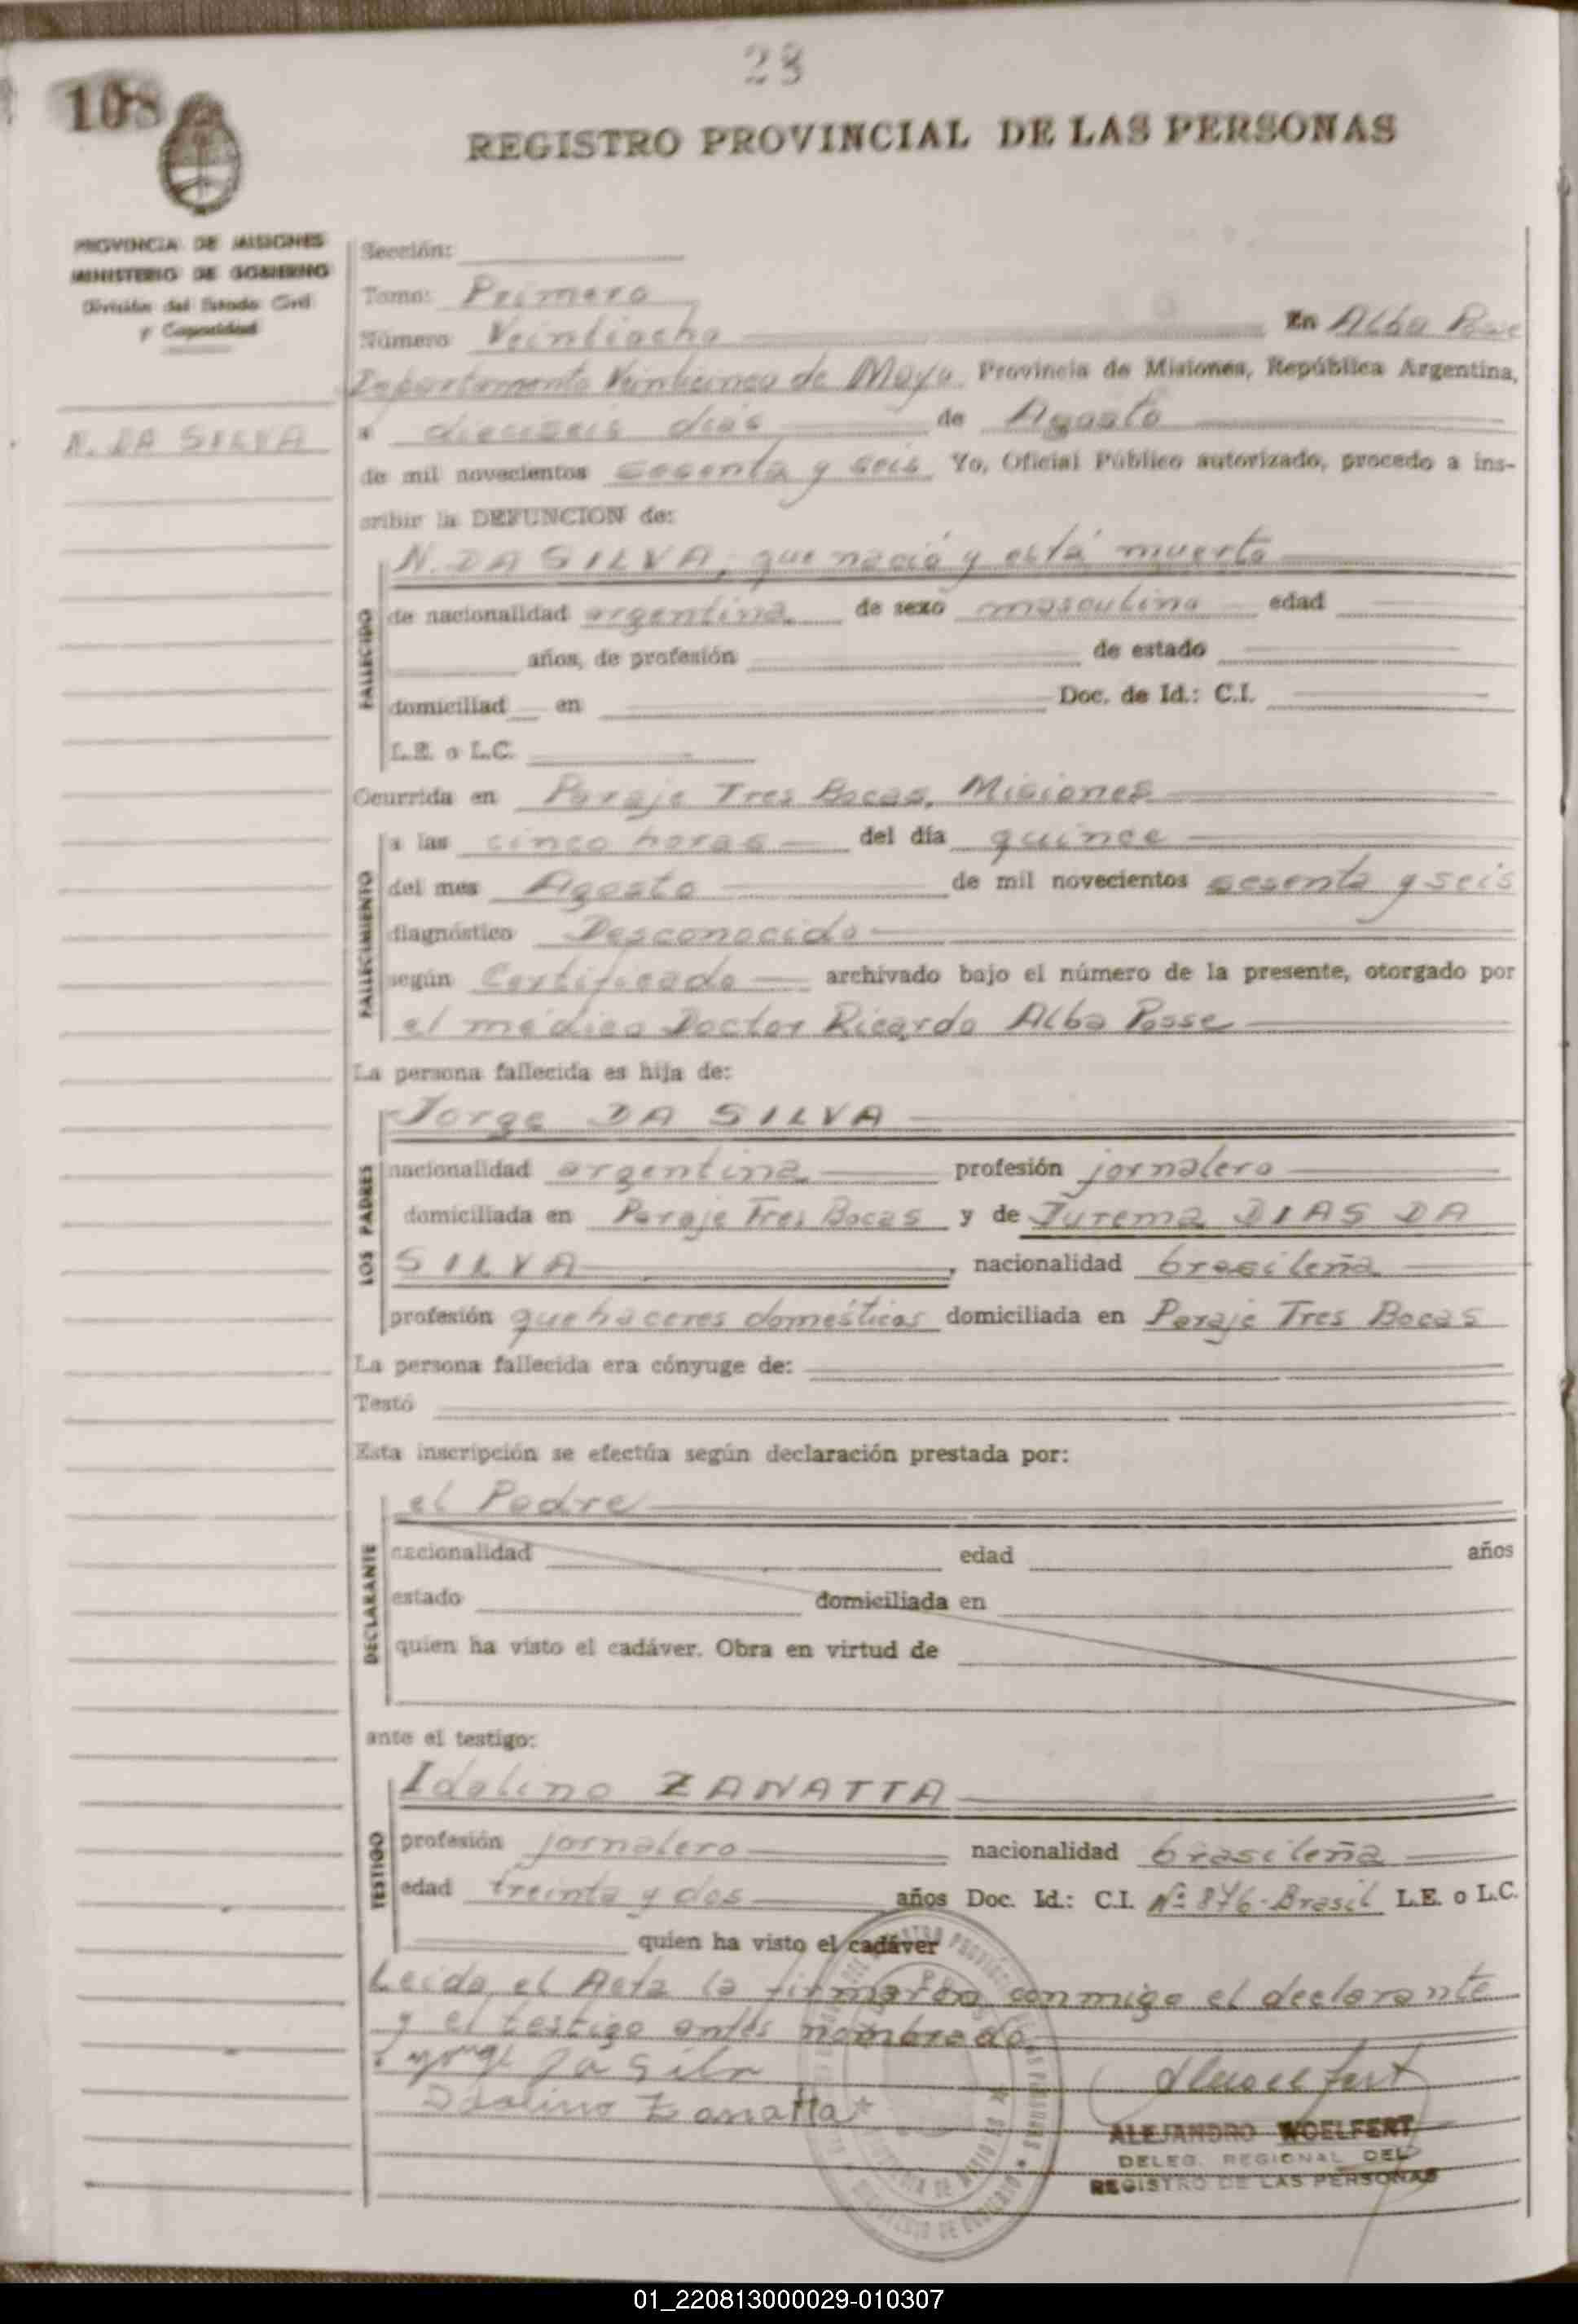 28
108
REGISTRO PROVINCIAL DE LAS PERSONAS
PROVINCIA DE MISIONES
MINISTERIO DE GOBIERNO
División del Estado Civil
y Capacidad
N. DA SILVA
Sección:
Tomo: Primero
Número Veintiocho En Alba Posse
Departamento Veinticinco de Mayo Provincia de Misiones, República Argentina,
a dieciseis días de Agosto
de mil novecientos sesenta y seis Yo, Oficial Público autorizado, procedo a ins-
cribir la DEFUNCION de:
FALLECIDO
N. DA SILVA, que nació y está muerto
de nacionalidad argentina de sexo masculino edad
años, de profesión de estado
domiciliad en Doc. de Id.: C.I.
L.E. o L.C.
Ocurrida en Paraje Tres Bocas, Misiones
FALLECIMIENTO
a las cinco horas del día quince
del mes Agosto de mil novecientos sesenta y seis
diagnóstico Desconocido
según Certificado archivado bajo el número de la presente, otorgado por
el médico Doctor Ricardo Alba Posse
La persona fallecida es hija de:
LOS PADRES
Jorge DA SILVA
nacionalidad argentina profesión jornalero
domiciliada en Paraje Tres Bocas y de Jurema DIAS DA
SILVA, nacionalidad brasileña
profesión quehaceres domésticos domiciliada en Paraje Tres Bocas
La persona fallecida era cónyuge de:
Testó
Esta inscripción se efectúa según declaración prestada por:
DECLARANTE
el Padre
nacionalidad edad años
estado domiciliada en
quien ha visto el cadáver. Obra en virtud de
ante el testigo:
TESTIGO
Idalino ZANATTA
profesión jornalero nacionalidad brasileña
edad treinta y dos años Doc. Id.: C.I. Nº 876-Brasil L.E. o L.C.
quien ha visto el cadáver
Leida el Acta la firmaron conmigo el declarante
y el testigo antes nombrado
Idalino Zanatta
ALEJANDRO WOELFERT
DELEG. REGIONAL DEL
REGISTRO DE LAS PERSONAS
01_220813000029-010307